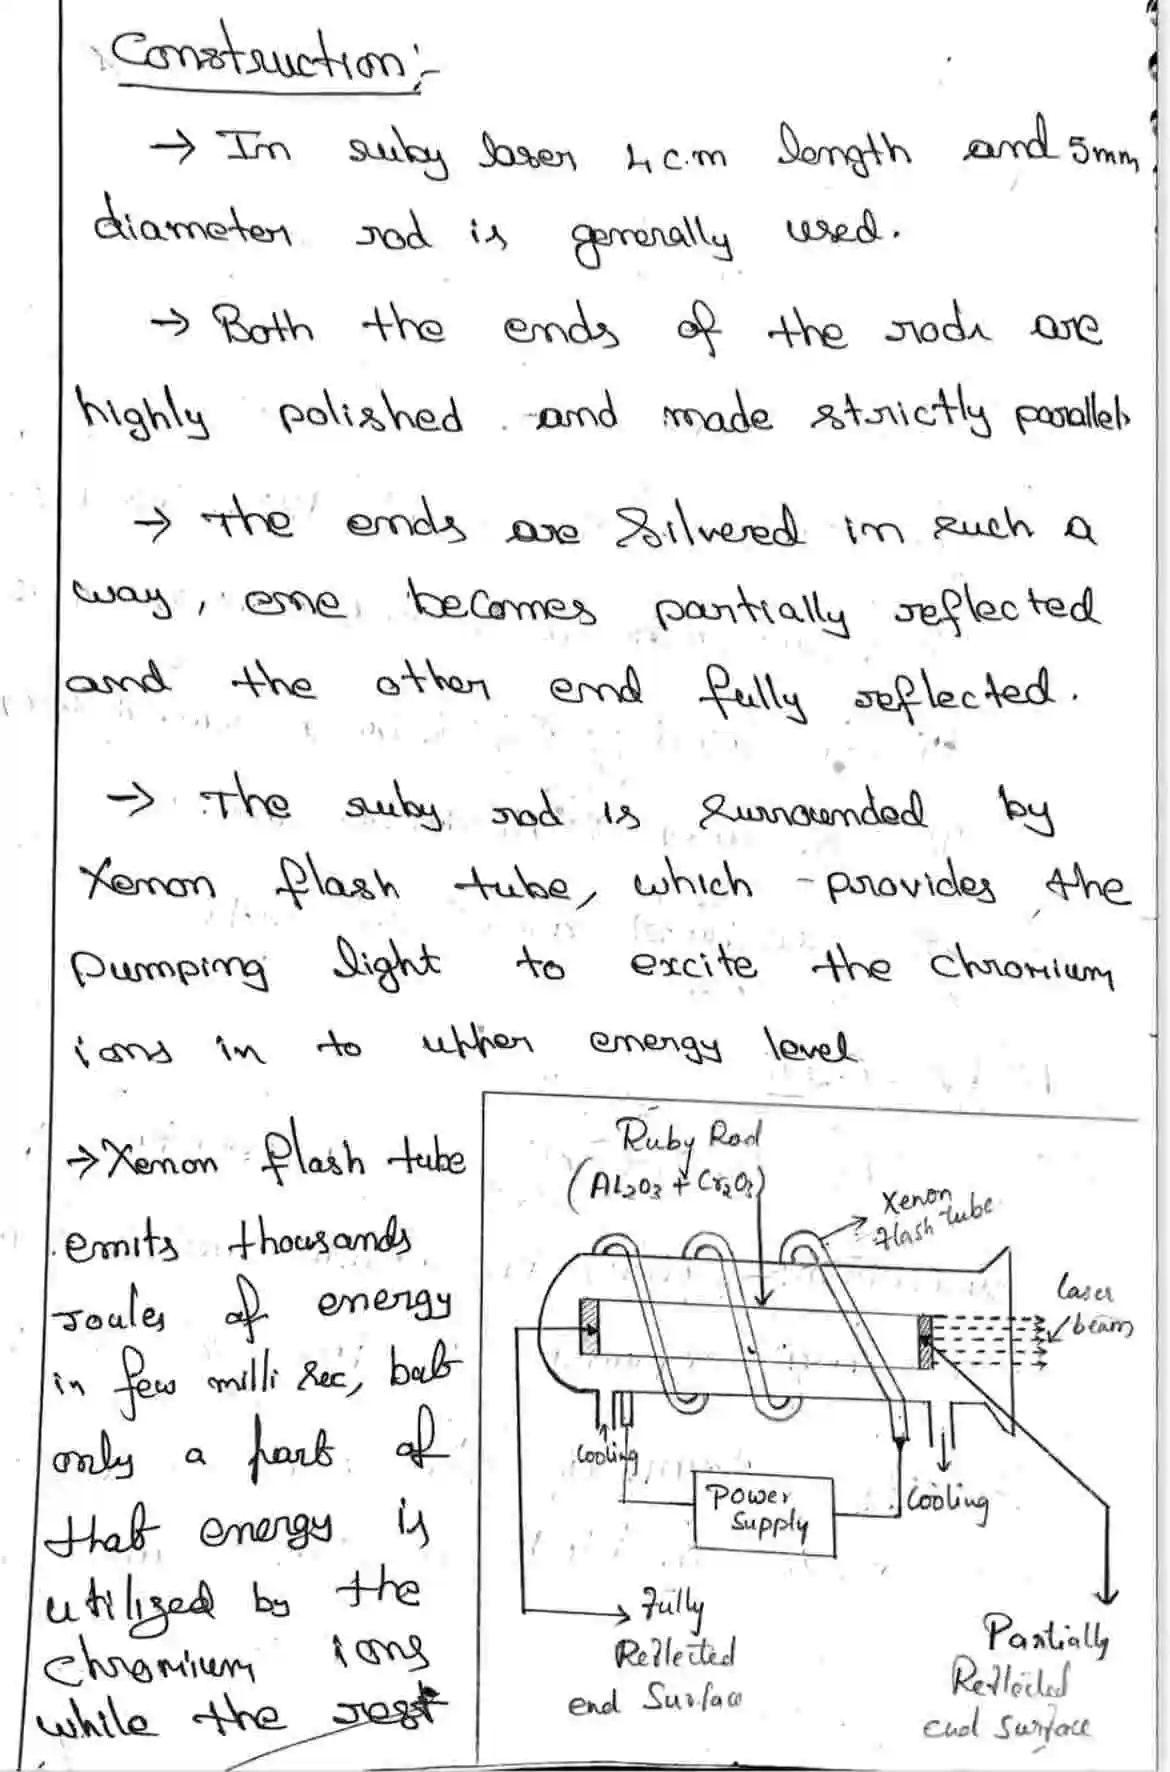 Construction:-
→ In ruby laser 4 c.m length and 5mm
diameter rod is generally used.
→ Both the ends of the rods are
highly polished and made strictly parallel.
→ The ends are Silvered in such a
way, one becomes partially reflected
and the other end fully reflected.
→ The ruby rod is surrounded by
Xenon flash tube, which provides the
pumping light to excite the chromium
ions in to upper energy level
→ Xenon flash tube
emits thousands
joules of energy
in few milli sec, but
only a part of
that energy is
utilized by the
chromium ions
while the rest
Ruby Rod
(Al2O3 + Cr2O3)
Xenon
flash tube
laser
beam
cooling
Power
Supply
Cooling
Fully
Reflected
end Surface
Partially
Reflected
end surface